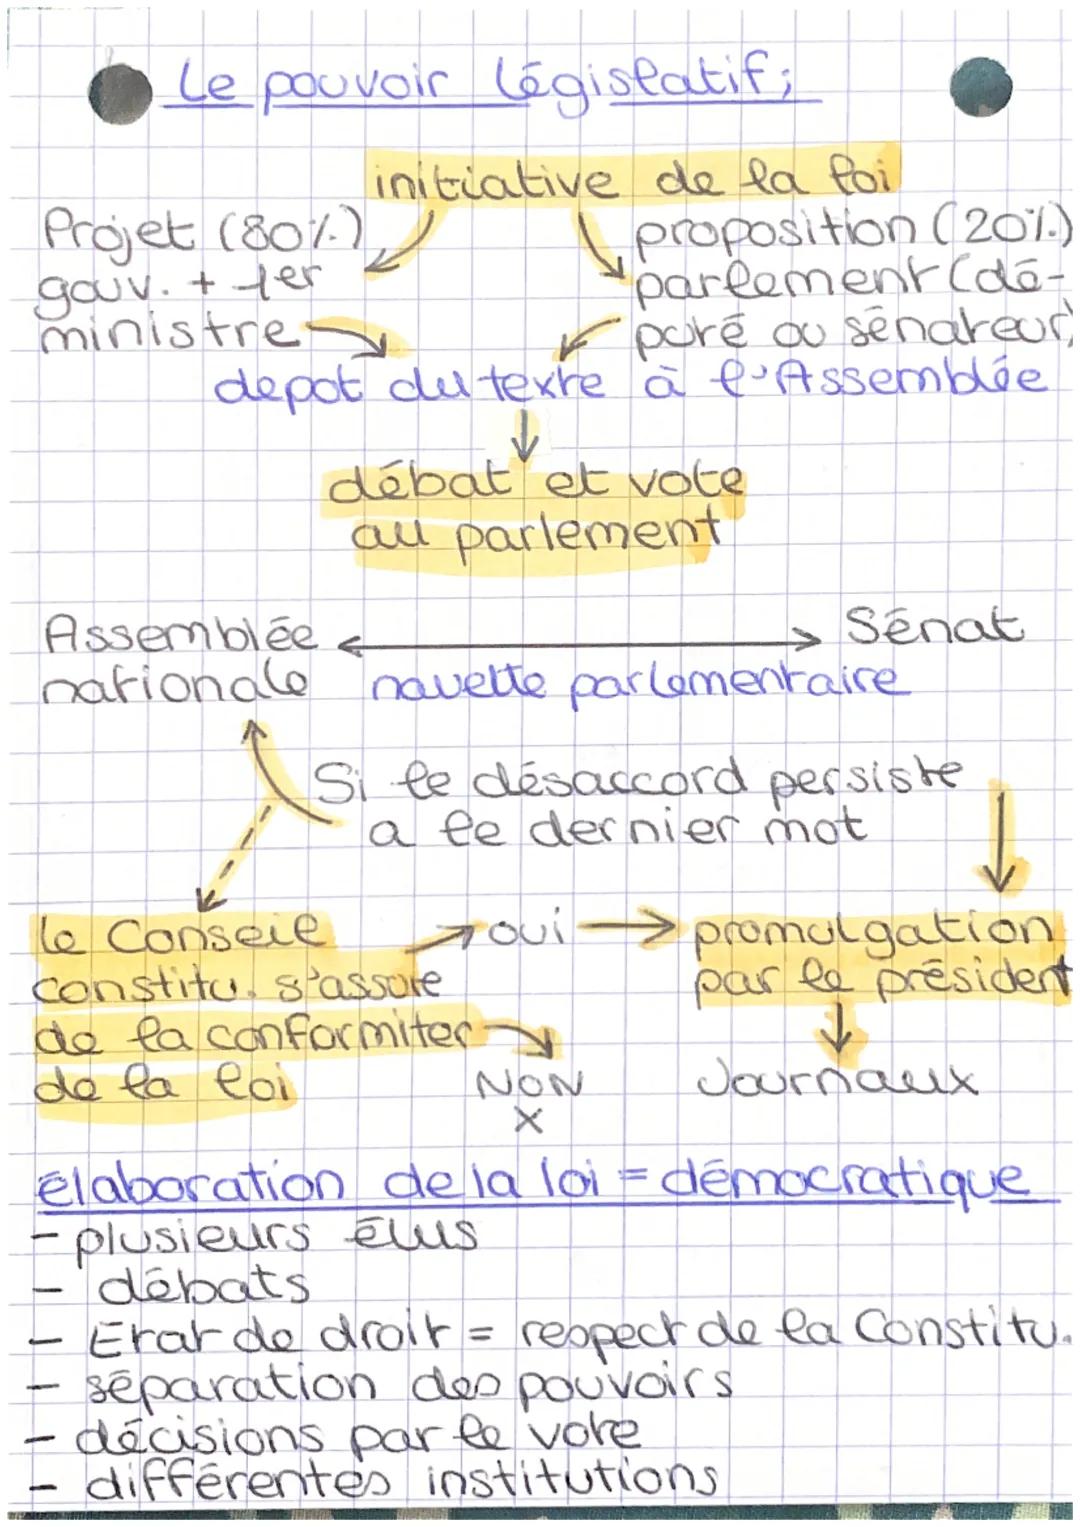 Le pouvoir législatif;
initiative de la loi
Projet (80%)
gouv. + 1er
ministre
proposition (20%)
parlement (dé-
puté ou sénateur)
depot du texte à l'Assemblée
débat et vote
au parlement
Assemblée
nationale
Sénat
navette parlementaire
Si le désaccord persiste
a le dernier mot
le Conseil
constitu. s'assure
de la conformiter
de la loi
oui
NON
X
promulgation
par le président
Journaux
élaboration de la loi = démocratique
- plusieurs élus
- débats
- Etat de droit = respect de la Constitu.
- séparation des pouvoirs
- décisions par le vote
- différentes institutions